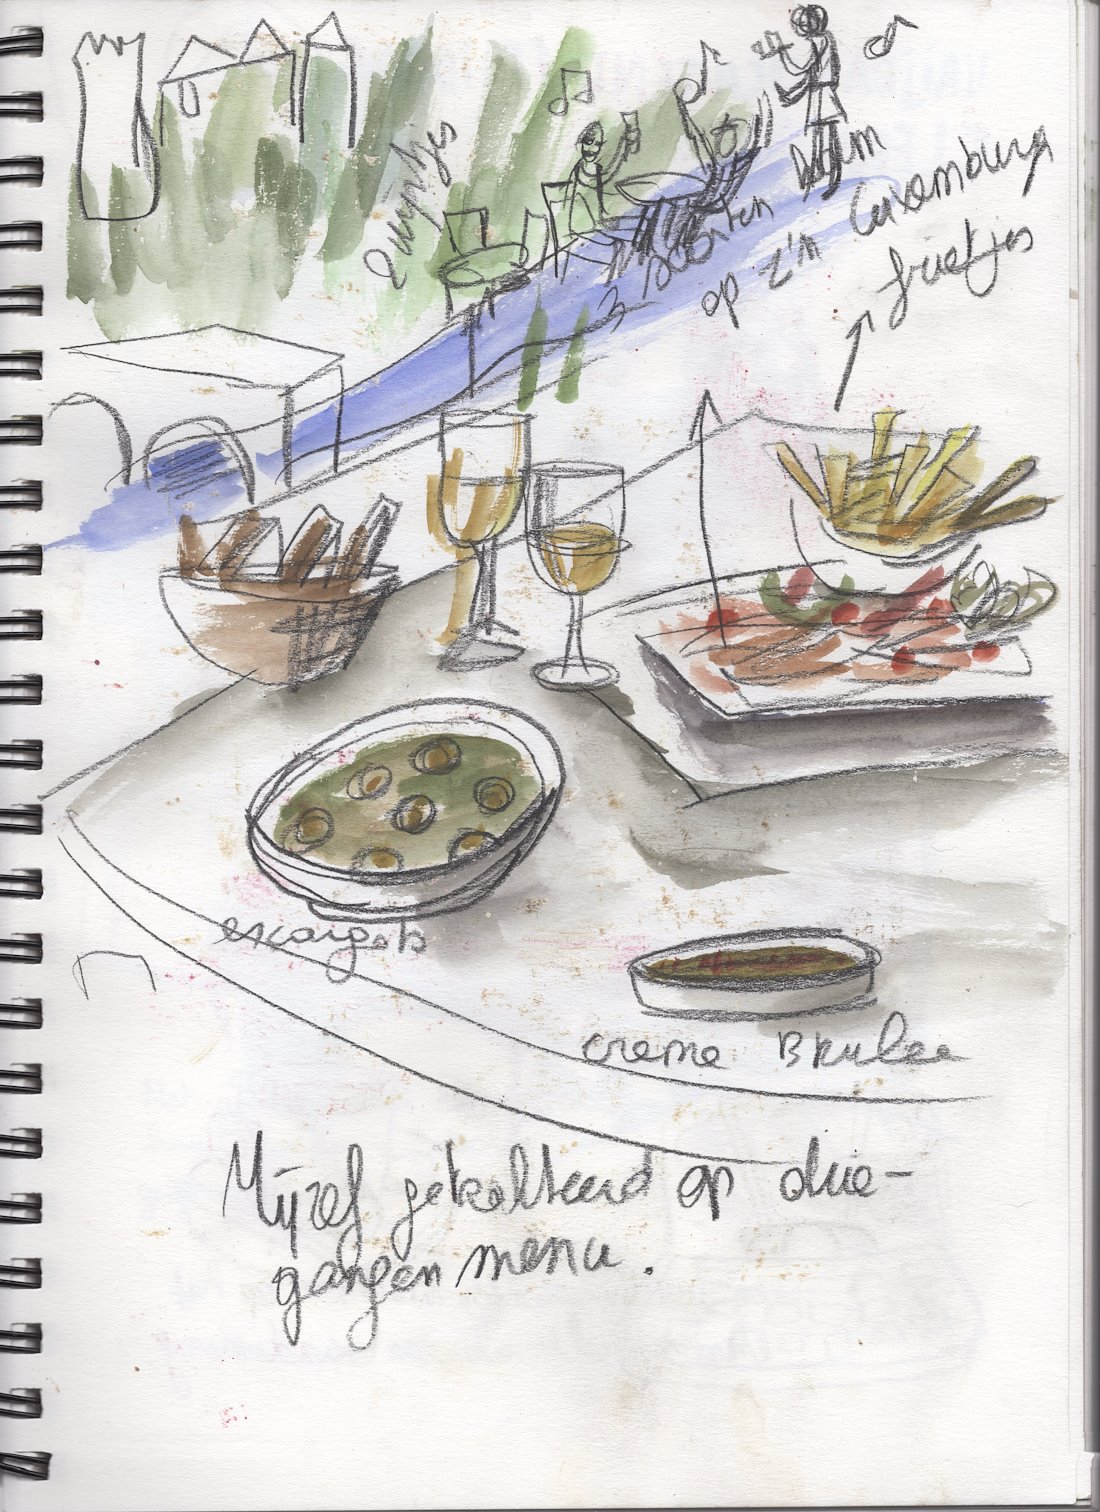 3 soorten ham
op z'n Luxemburgs
frietjes
escargots
creme Brulee
Mijzelf getrakteerd op drie-
gangen menu.